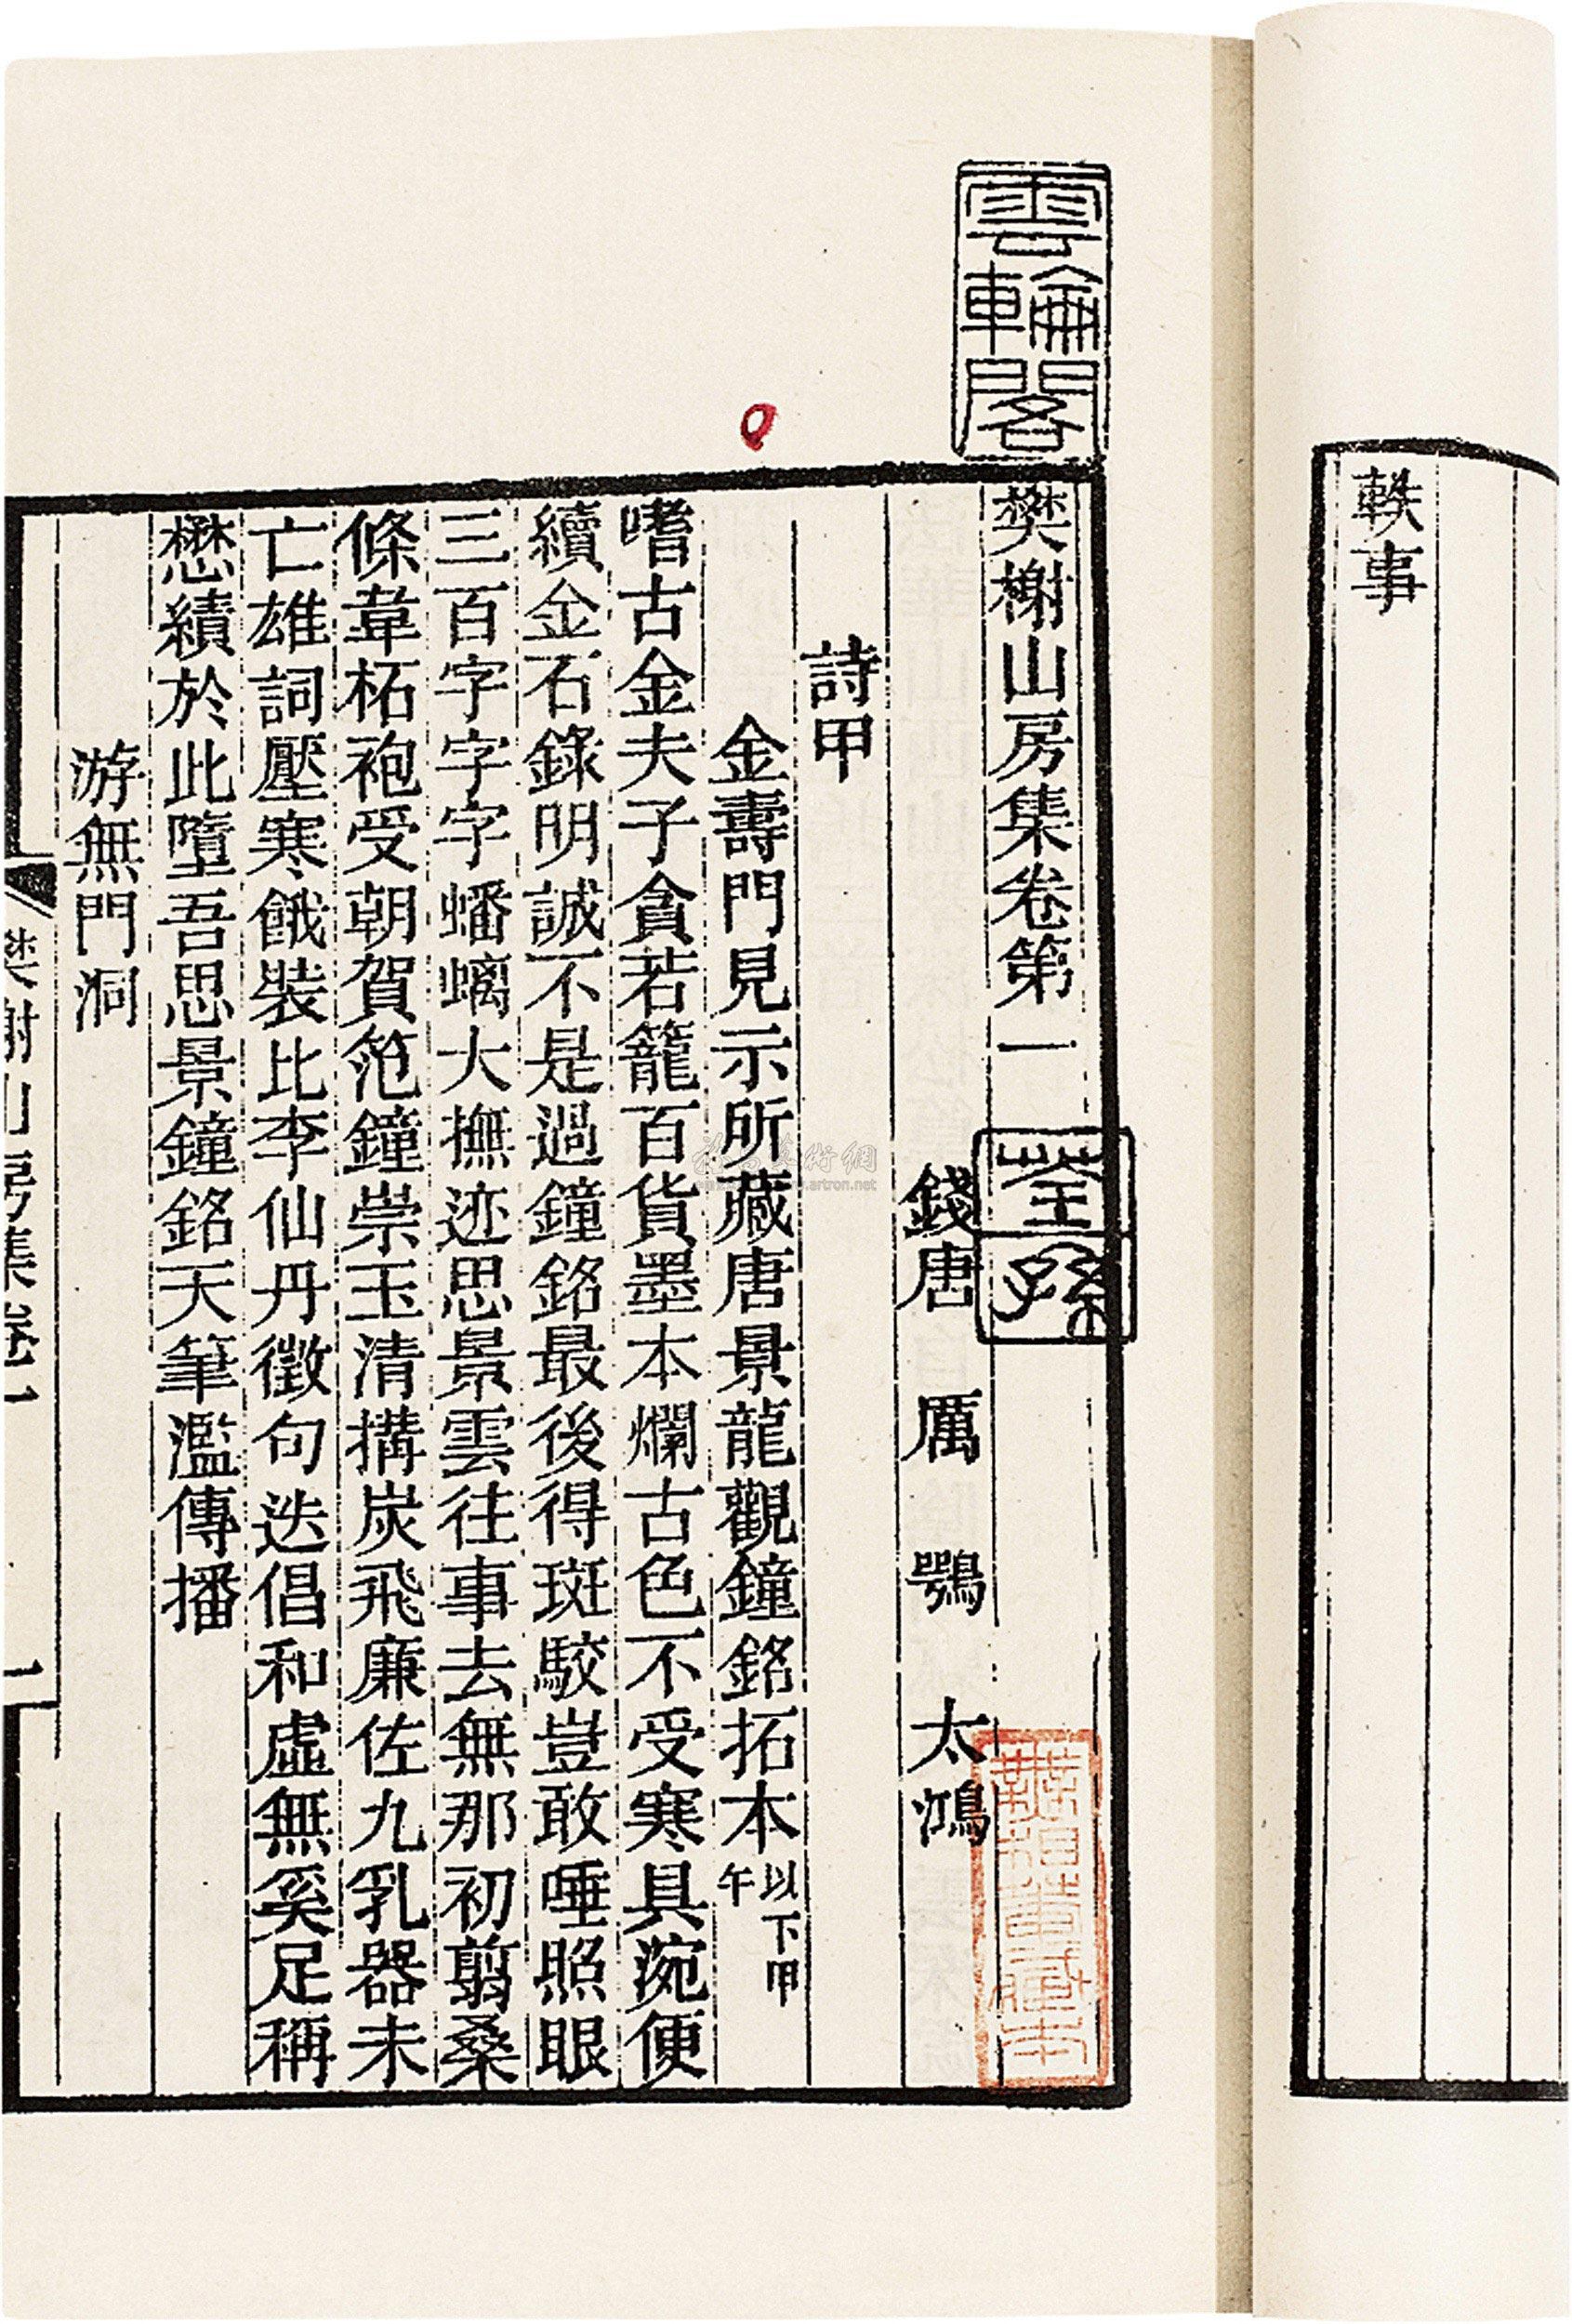 軼事
雲輪閣
樊榭山房集卷第一
荃孫
錢唐 厲鶚 太鴻
詩甲
金壽門見示所藏唐景龍觀鐘銘拓本以下甲午
嗜古金夫子貪若籠百貨墨本爛古色不受寒具涴便
續金石錄明誠不是過鐘銘最後得斑駮豈敢唾照眼
三百字字字蟠螭大撫迹思景雲往事去無那初翦桑
條韋柘袍受朝賀范鐘崇玉清搆炭飛廉佐九乳器未
亡雄詞壓寒餓裝比李仙丹徵句迭倡和虛無奚足稱
懋績於此墮吾思景鐘銘天筆濫傳播
游無門洞
樊榭山房集卷一
一